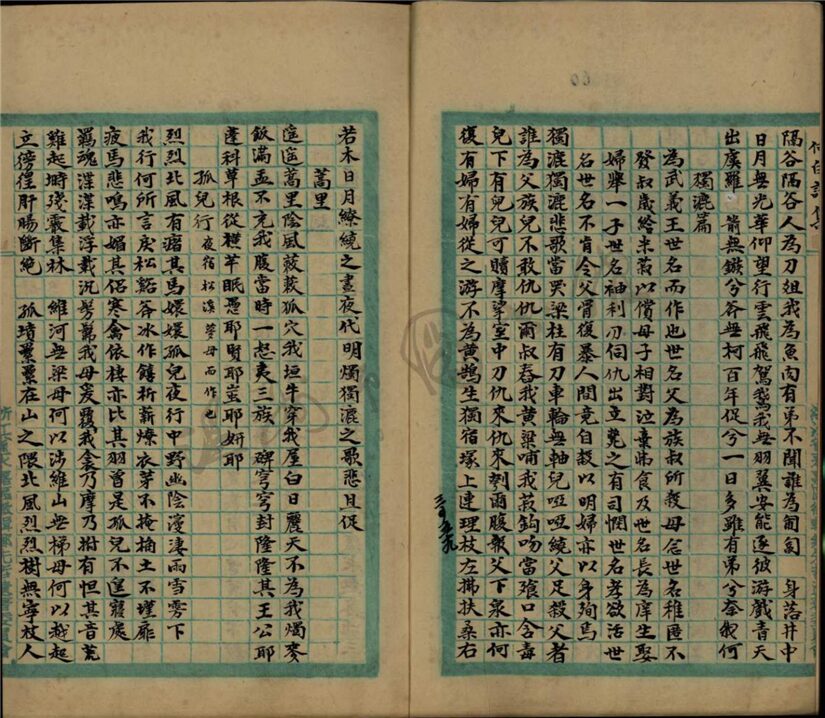 隔谷隔谷人為刀俎我為魚肉有弟不聞誰為匍匐　身落井中
日月無光華仰望行雲飛飛駕鵝我無羽翼安能逐彼游戲青天
出虞羅　箭無鏃兮斧無柯百年促兮一日多雖有弟兮奈我何
獨漉篇
為武義王世名而作也世名父為族叔所殺母念世名稚匿不
發叔歲終末菽以償母子相對泣棄弗食及世名長為庠生娶
婦舉一子世名袖利刃伺仇出立斃之有司憫世名孝欲活世
名世名不肯令父骨復暴人間竟自殺以明婦亦以身殉焉
獨漉獨漉悲歌當哭梁柱有刀車輪無軸兒啞啞繞父足殺父者
誰為父族兒不敢仇仇爾叔舂我黃粱哺我菽鈎吻當飱口含毒
兒下有兒兒可贖摩挲室中刀仇來仇來刺爾腹報父下泉亦何
復有婦有婦從之游不為黃鵠生獨宿塚上連理枝左拂扶桑右
三百五九
若木日月繚繞之晝夜代明燭獨漉之歌悲且促
蒿里
薤露蒿里陰風蔌蔌狐穴我垣牛穿我屋白日麗天不為我燭麥
飯滿盂不充我腹當時一怒夷三族　碑穹穹封隆隆其王公耶
蓬科草根從橫芊眠愚耶賢耶蚩耶妍耶
孤兒行　夜宿松溪夢母而作也
烈烈北風有瘏其馬嬛嬛孤兒夜行中野幽陰濛淒雨雪雰下
我行何所言戾松谿斧冰作饎析薪燎衣茅不掩檐土不墐扉
疲馬悲鳴亦媚其侶寒禽依棲亦比其羽曾是孤兒不遑寢處
羈魂渫渫載浮載沉髣髴我母爰覆我衾乃摩乃拊有怛其音荒
雞起塒殘霰集林　維河無梁母何以涉維山無梯母何以越起
立徬徨肝腸斷絕　孤墳纍纍在山之隈北風烈烈樹無寧枝人